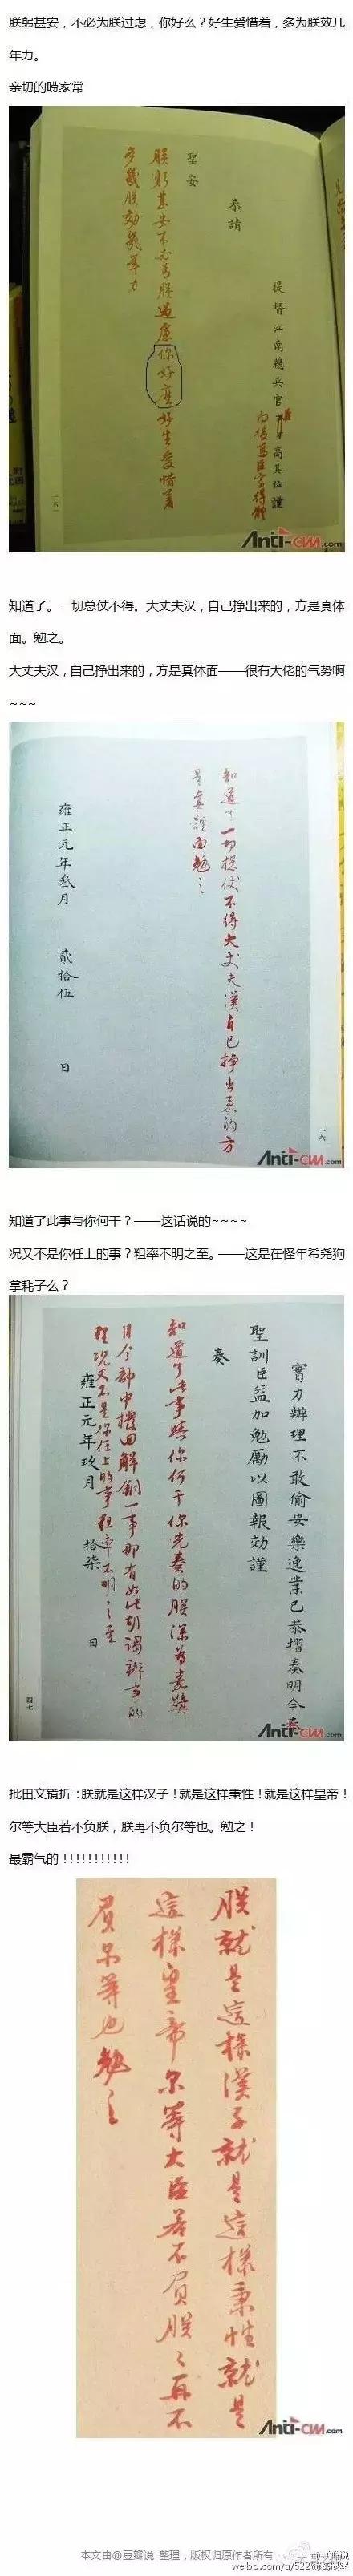 朕躬甚安，不必为朕过虑，你好么？好生爱惜着，多为朕效几
年力。
亲切的唠家常
提督江南總兵官
高其位謹
向後寫臣字得體
恭請
聖安
朕躬甚安不必為朕過慮你好麼好生愛惜著
多幾朕効幾年力
一八一
Anti-CM.com
知道了。一切总仗不得。大丈夫汉，自己挣出来的，方是真体
面。勉之。
大丈夫汉，自己挣出来的，方是真体面——很有大佬的气势啊
~~~
知道了一切總仗不得大丈夫漢自己掙出來的方
是真體面勉之
雍正元年叁月 貳拾伍 日
一六
Anti-CM.com
知道了此事与你何干？——这话说的~~~~
况又不是你任上的事？粗率不明之至。——这是在怪年希尧狗
拿耗子么？
實力辦理不敢偷安樂逸業已恭摺奏明今奉
聖訓臣益加勉勵以圖報効謹
奏
知道了此事與你何干你先奏的朕深為嘉獎
目今部中撥回解銅一事那有如此胡謅辦事的
理况又不是你任上的事粗率不明之至
雍正元年玖月 拾柒 日
四七
Anti-CM.com
批田文镜折：朕就是这样汉子！就是这样秉性！就是这样皇帝！
尔等大臣若不负朕，朕再不负尔等也。勉之！
最霸气的！！！！！！！！！！
朕就是這樣漢子就是這樣秉性就是
這樣皇帝尔等大臣若不負朕〻再不
負尔等也勉之
Anti-CM.com
本文由@豆瓣说 整理，版权归原作者所有